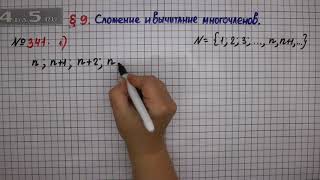 § 9. Сложение и вычитание многочленов.
№341. 1)
N = {1, 2, 3, ..., n, n+1, ...}
n ; n+1 ; n+2 ; n